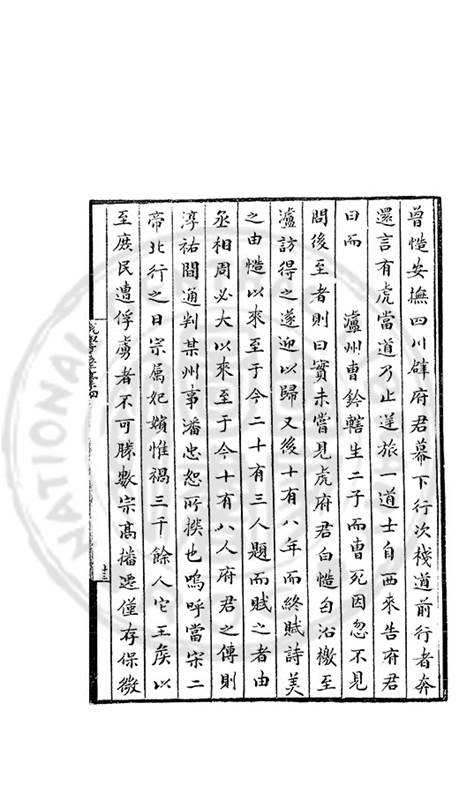 曾慥安撫四川辟府君幕下行次棧道前行者奔
還言有虎當道乃止逆旅一道士自西來告府君
曰而　　瀘州曹鈐轄生二子而曹死因忽不見
問後至者則曰實未嘗見虎府君白慥勾沿檄至
瀘訪得之遂迎以歸又後十有八年而終賦詩美
之由慥以來至于今二十有三人題而賦之者由
丞相周必大以來至于今十有八人府君之傳則
淳祐間通判某州事潘忠恕所撰也嗚呼當宋二
帝北行之日宗属妃嬪惟禍三千餘人它王矦以
至庶民遭俘虜者不可勝數宗髙播遷僅存保微
十三
NATIONAL